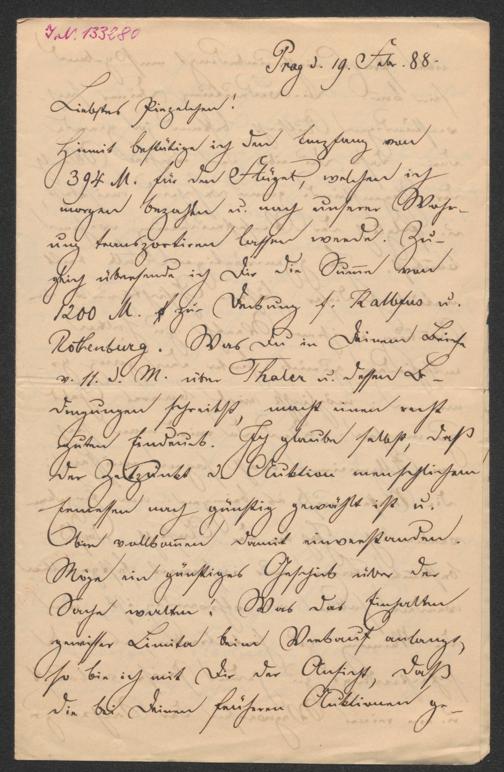 I.N. 133280
Prag d. 19. Febr. 88.
Liebstes Piezelchen!
Hiermit bestätige ich den Empfang von
394 M. für den Flügel, welchen ich
morgen bezahlen u. nach unserer Wohn-
ung transportieren lassen werde. Zu-
gleich übersende ich Dir die Summe von
1200 M. zur Deckung f. Kalbfus u.
Rothenburg. Was Du in Deinem Briefe
v. 11. d. M. über Thaler u. dessen B-
dingungen schreibst, macht einen recht
guten Eindruck. Ich glaube selbst, daß
der Zeitpunkt d Auktion menschlichem
Ermessen nach günstig gewählt ist u.
bin vollkommen damit einverstanden.
Möge ein günstiges Geschick über der
Sache walten! Was das Einhalten
gewisser Limita beim Verkauf anlangt,
so bin ich mit Dir der Ansicht, daß
die bei Deinen früheren Auktionen ge-